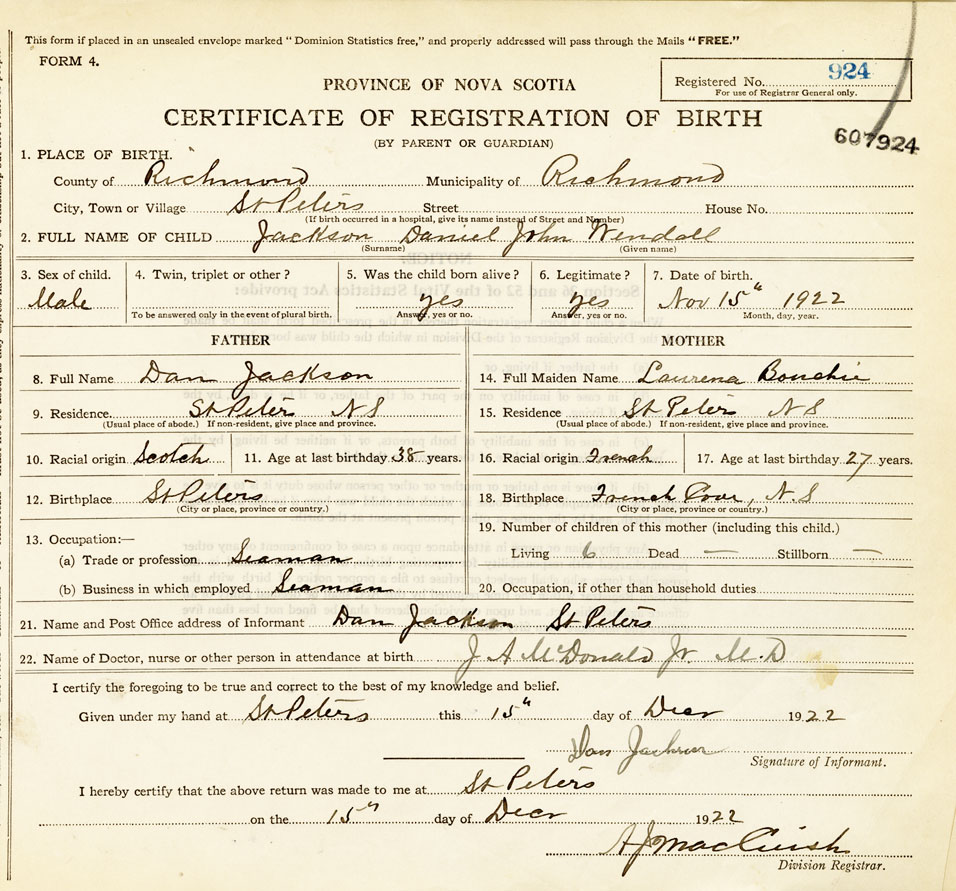 This form if placed in an unsealed envelope marked "Dominion Statistics free," and properly addressed will pass through the Mails "FREE."
FORM 4.
PROVINCE OF NOVA SCOTIA
Registered No. 924
For use of Registrar General only.
CERTIFICATE OF REGISTRATION OF BIRTH
607924
(BY PARENT OR GUARDIAN)
1. PLACE OF BIRTH.
County of Richmond Municipality of Richmond
City, Town or Village St Peters Street House No.
(If birth occurred in a hospital, give its name instead of Street and Number)
2. FULL NAME OF CHILD Jackson Daniel John Wendall
(Surname) (Given name)
3. Sex of child. 4. Twin, triplet or other? 5. Was the child born alive? 6. Legitimate? 7. Date of birth.
Male yes yes Nov 15" 1922
To be answered only in the event of plural birth. Answer, yes or no. Answer, yes or no. Month, day, year.
FATHER MOTHER
8. Full Name Dan Jackson 14. Full Maiden Name Laurena Bouchie
9. Residence. St Peters N S 15. Residence St Peters N S
(Usual place of abode.) If non-resident, give place and province. (Usual place of abode.) If non-resident, give place and province.
10. Racial origin Scotch 11. Age at last birthday 38 years. 16. Racial origin French 17. Age at last birthday 27 years.
12. Birthplace St Peters 18. Birthplace French Cove, N.S
(City or place, province or country.) (City or place, province or country.)
19. Number of children of this mother (including this child.)
13. Occupation:—
Living 6 Dead — Stillborn —
(a) Trade or profession Seaman
(b) Business in which employed Seaman 20. Occupation, if other than household duties
21. Name and Post Office address of Informant Dan Jackson St Peters
22. Name of Doctor, nurse or other person in attendance at birth J A McDonald Jr. M.D
I certify the foregoing to be true and correct to the best of my knowledge and belief.
Given under my hand at St Peters this 15" day of Decr 1922
Dan Jackson
Signature of Informant.
I hereby certify that the above return was made to me at St Peters
on the 15" day of Decr 1922
A J MacCuish
Division Registrar.